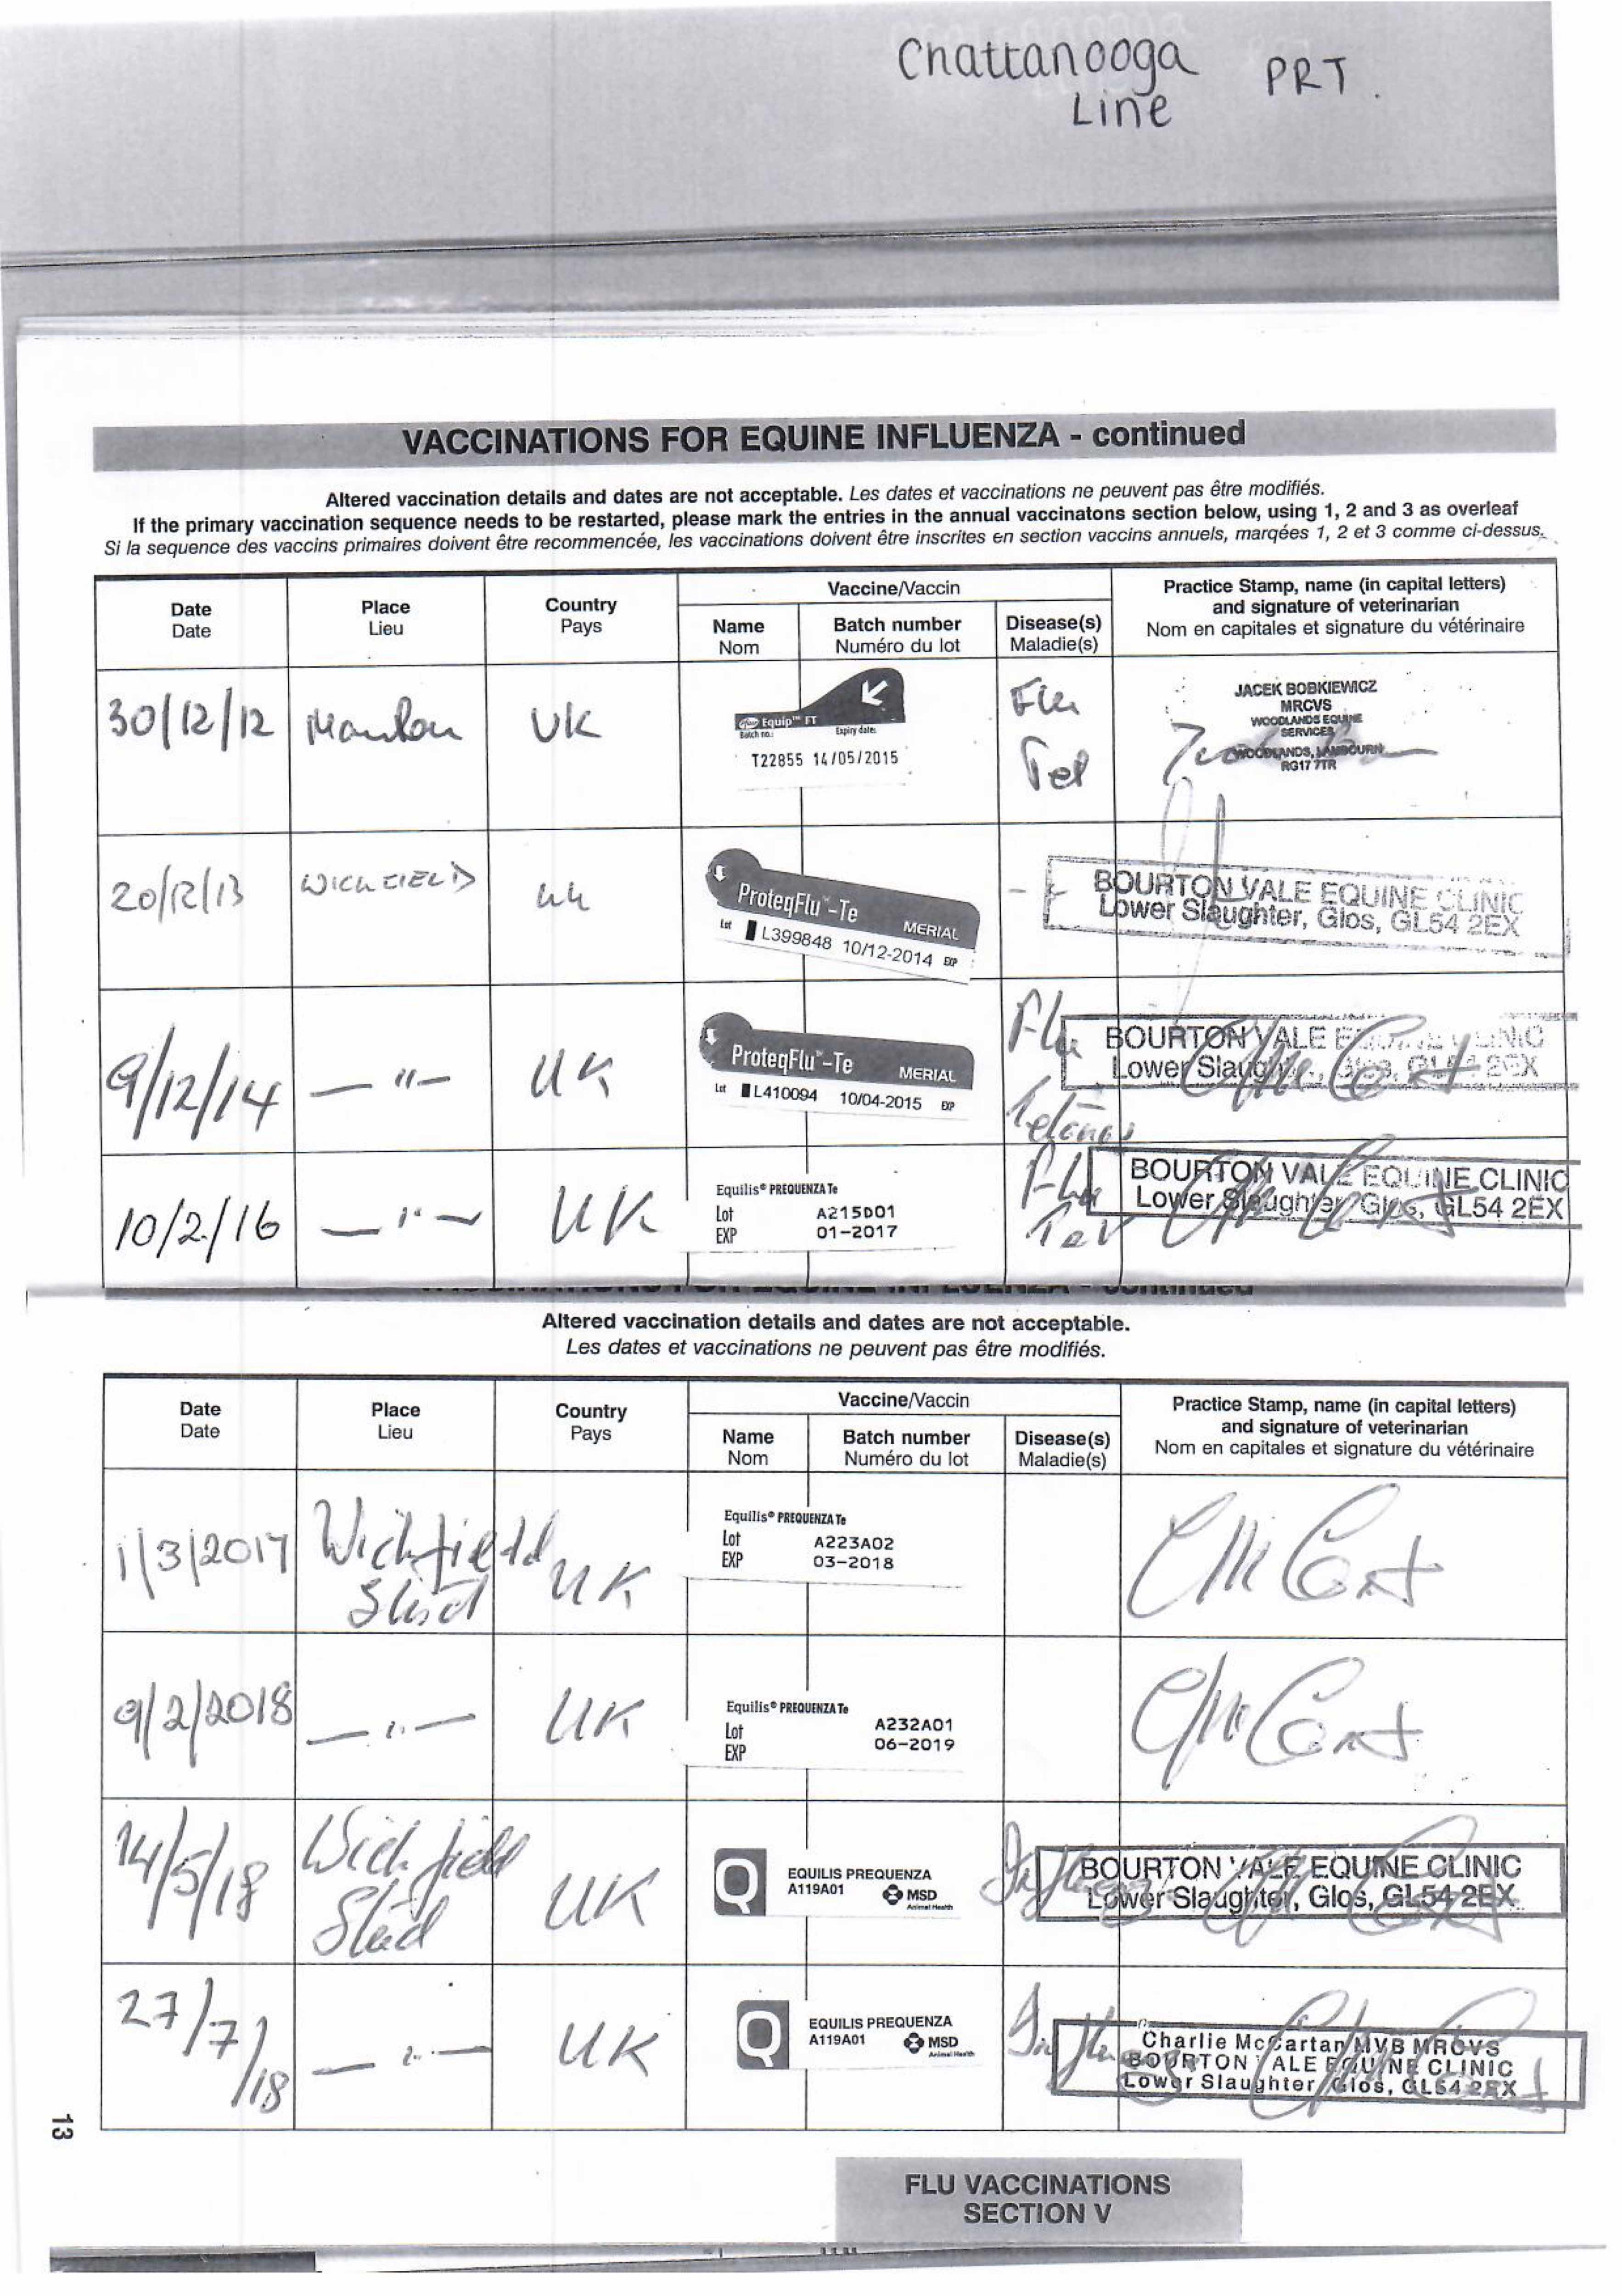 Chattanooga PRT.
Line
VACCINATIONS FOR EQUINE INFLUENZA - continued
Altered vaccination details and dates are not acceptable. Les dates et vaccinations ne peuvent pas être modifiés.
If the primary vaccination sequence needs to be restarted, please mark the entries in the annual vaccinatons section below, using 1, 2 and 3 as overleaf
Si la sequence des vaccins primaires doivent être recommencée, les vaccinations doivent être inscrites en section vaccins annuels, marqées 1, 2 et 3 comme ci-dessus.
Date Place Country Vaccine/Vaccin Practice Stamp, name (in capital letters)
Date Lieu Pays and signature of veterinarian
Name Batch number Disease(s) Nom en capitales et signature du vétérinaire
Nom Numéro du lot Maladie(s)
30/12/12 Manton UK
Equip™ FT
Batch no.: Expiry date:
T22855 14/05/2015
Flu
Tet
JACEK BOBKIEWICZ
MRCVS
WOODLANDS EQUINE
SERVICES
WOODLANDS, LAMBOURN
RG17 7TR
20/12/13 WICKFIELD UK
ProteqFlu™-Te MERIAL
Lot L399848 10/12-2014 EXP
BOURTON VALE EQUINE CLINIC
Lower Slaughter, Glos, GL54 2EX
9/12/14 — " — UK
ProteqFlu™-Te MERIAL
Lot L410094 10/04-2015 EXP
Flu
Tetanus
BOURTON VALE EQUINE CLINIC
Lower Slaughter, Glos, GL54 2EX
10/2/16 — " — UK
Equilis® PREQUENZA Te
Lot A215D01
EXP 01-2017
Flu
Tet
BOURTON VALE EQUINE CLINIC
Lower Slaughter, Glos, GL54 2EX
VACCINATIONS FOR EQUINE INFLUENZA - continued
Altered vaccination details and dates are not acceptable.
Les dates et vaccinations ne peuvent pas être modifiés.
Date Place Country Vaccine/Vaccin Practice Stamp, name (in capital letters)
Date Lieu Pays and signature of veterinarian
Name Batch number Disease(s) Nom en capitales et signature du vétérinaire
Nom Numéro du lot Maladie(s)
1/3/2017 Wickfield UK
Stud
Equilis® PREQUENZA Te
Lot A223A02
EXP 03-2018
9/2/2018 — " — UK
Equilis® PREQUENZA Te
Lot A232A01
EXP 06-2019
14/5/18 Wickfield UK
Stud
Q EQUILIS PREQUENZA
A119A01 MSD
Animal Health
Influenza
BOURTON VALE EQUINE CLINIC
Lower Slaughter, Glos, GL54 2EX
27/7/18 — " — UK
Q EQUILIS PREQUENZA
A119A01 MSD
Animal Health
Influenza
Charlie McCartan MVB MRCVS
BOURTON VALE EQUINE CLINIC
Lower Slaughter, Glos, GL54 2EX
13
FLU VACCINATIONS
SECTION V